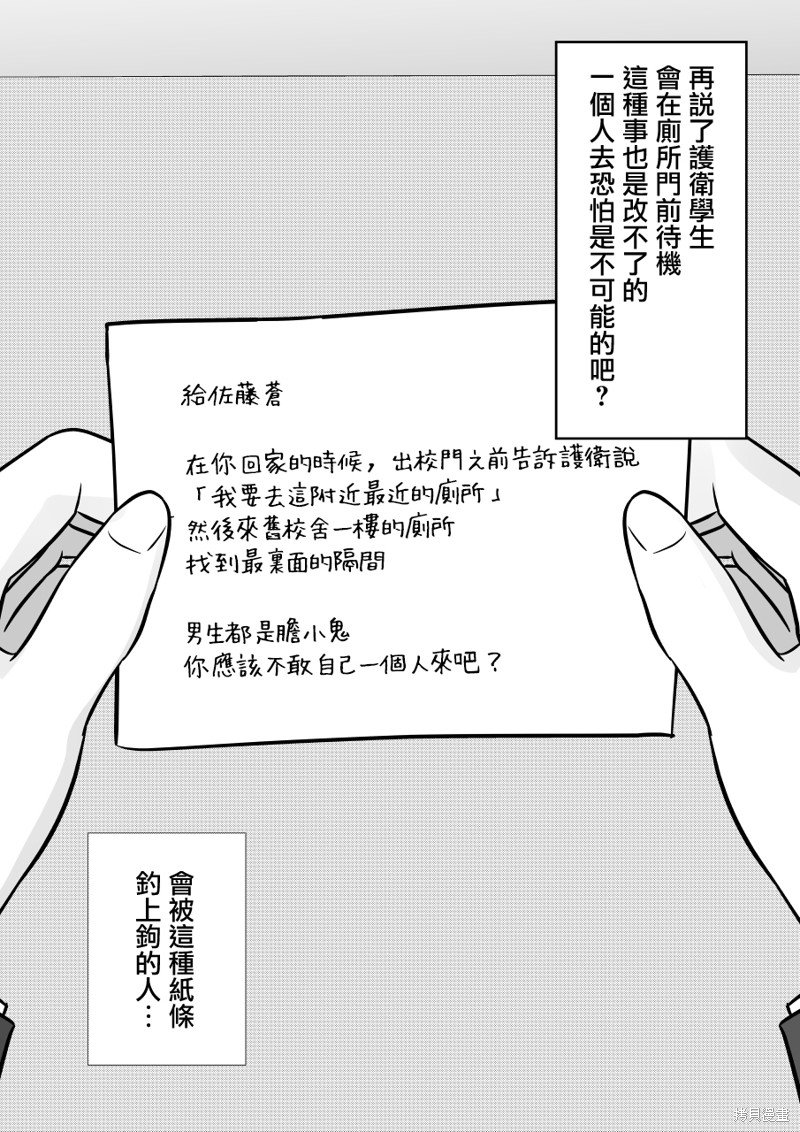 再説了護衛學生
會在廁所門前待機
這種事也是改不了的
一個人去恐怕是不可能的吧？
給佐藤蒼
在你回家的時候，出校門之前告訴護衛說
「我要去這附近最近的廁所」
然後來舊校舍一樓的廁所
找到最裏面的隔間
男生都是膽小鬼
你應該不敢自己一個人來吧？
會被這種紙條
釣上鉤的人…
拷貝漫畫